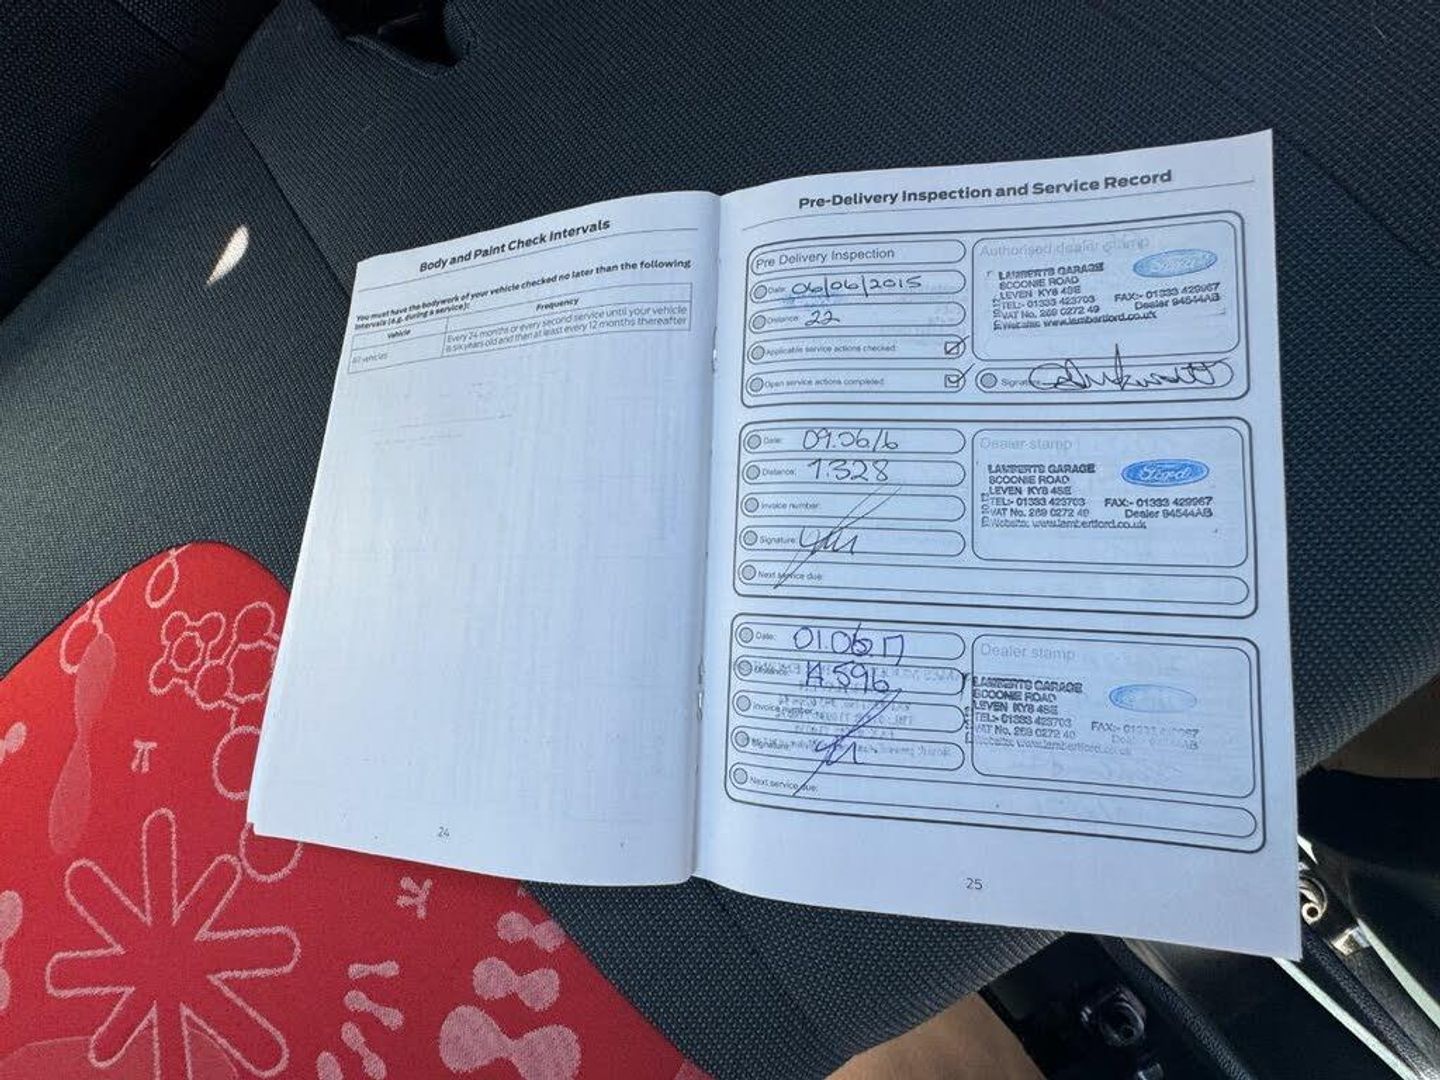 Body and Paint Check Intervals
You must have the bodywork of your vehicle checked no later than the following
intervals (e.g. during a service):
Vehicle
Frequency
All vehicles
Every 24 months or every second service until your vehicle
is six years old and then at least every 12 months thereafter
24
Pre-Delivery Inspection and Service Record
Pre Delivery Inspection
Date: 06/06/2015
Distance: 22
Applicable service actions checked:
Open service actions completed:
Authorised dealer stamp
Ford
LAMBERTS GARAGE
SCOONIE ROAD
LEVEN KY8 4SE
TEL:- 01333 423703 FAX:- 01333 429967
VAT No. 269 0272 49 Dealer 94544AB
Website: www.lambertford.co.uk
Signature:
Date: 09.06/6
Distance: 7.328
Invoice number:
Signature:
Next service due:
Dealer stamp
Ford
LAMBERTS GARAGE
SCOONIE ROAD
LEVEN KY8 4SE
TEL:- 01333 423703 FAX:- 01333 429967
VAT No. 269 0272 49 Dealer 94544AB
Website: www.lambertford.co.uk
Date: 01.06.17
Distance: 14.596
Invoice number:
Signature:
Next service due:
Dealer stamp
LAMBERTS GARAGE
SCOONIE ROAD
LEVEN KY8 4SE
TEL:- 01333 423703 FAX:- 01333
VAT No. 269 0272 49
Website: www.lambertford.co.uk
25